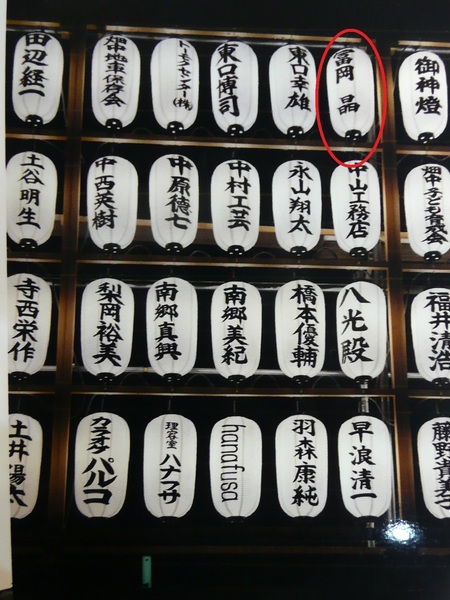 御神燈
冨岡 晶
東口幸雄
東口博司
トーヨーセンコー(株)
畑中地車保存会
田辺経一
畑中子ども育成会
中山工務店
永山翔太
中村工芸
中原德七
中西英樹
土谷明生
福井清浩
八光殿
橋本優輔
南郷美紀
南郷真興
梨岡裕美
寺西栄作
藤野貴美
早浪清一
羽森康純
hanafusa
理容室 ハナフサ
カラオケ パルコ
土井陽太